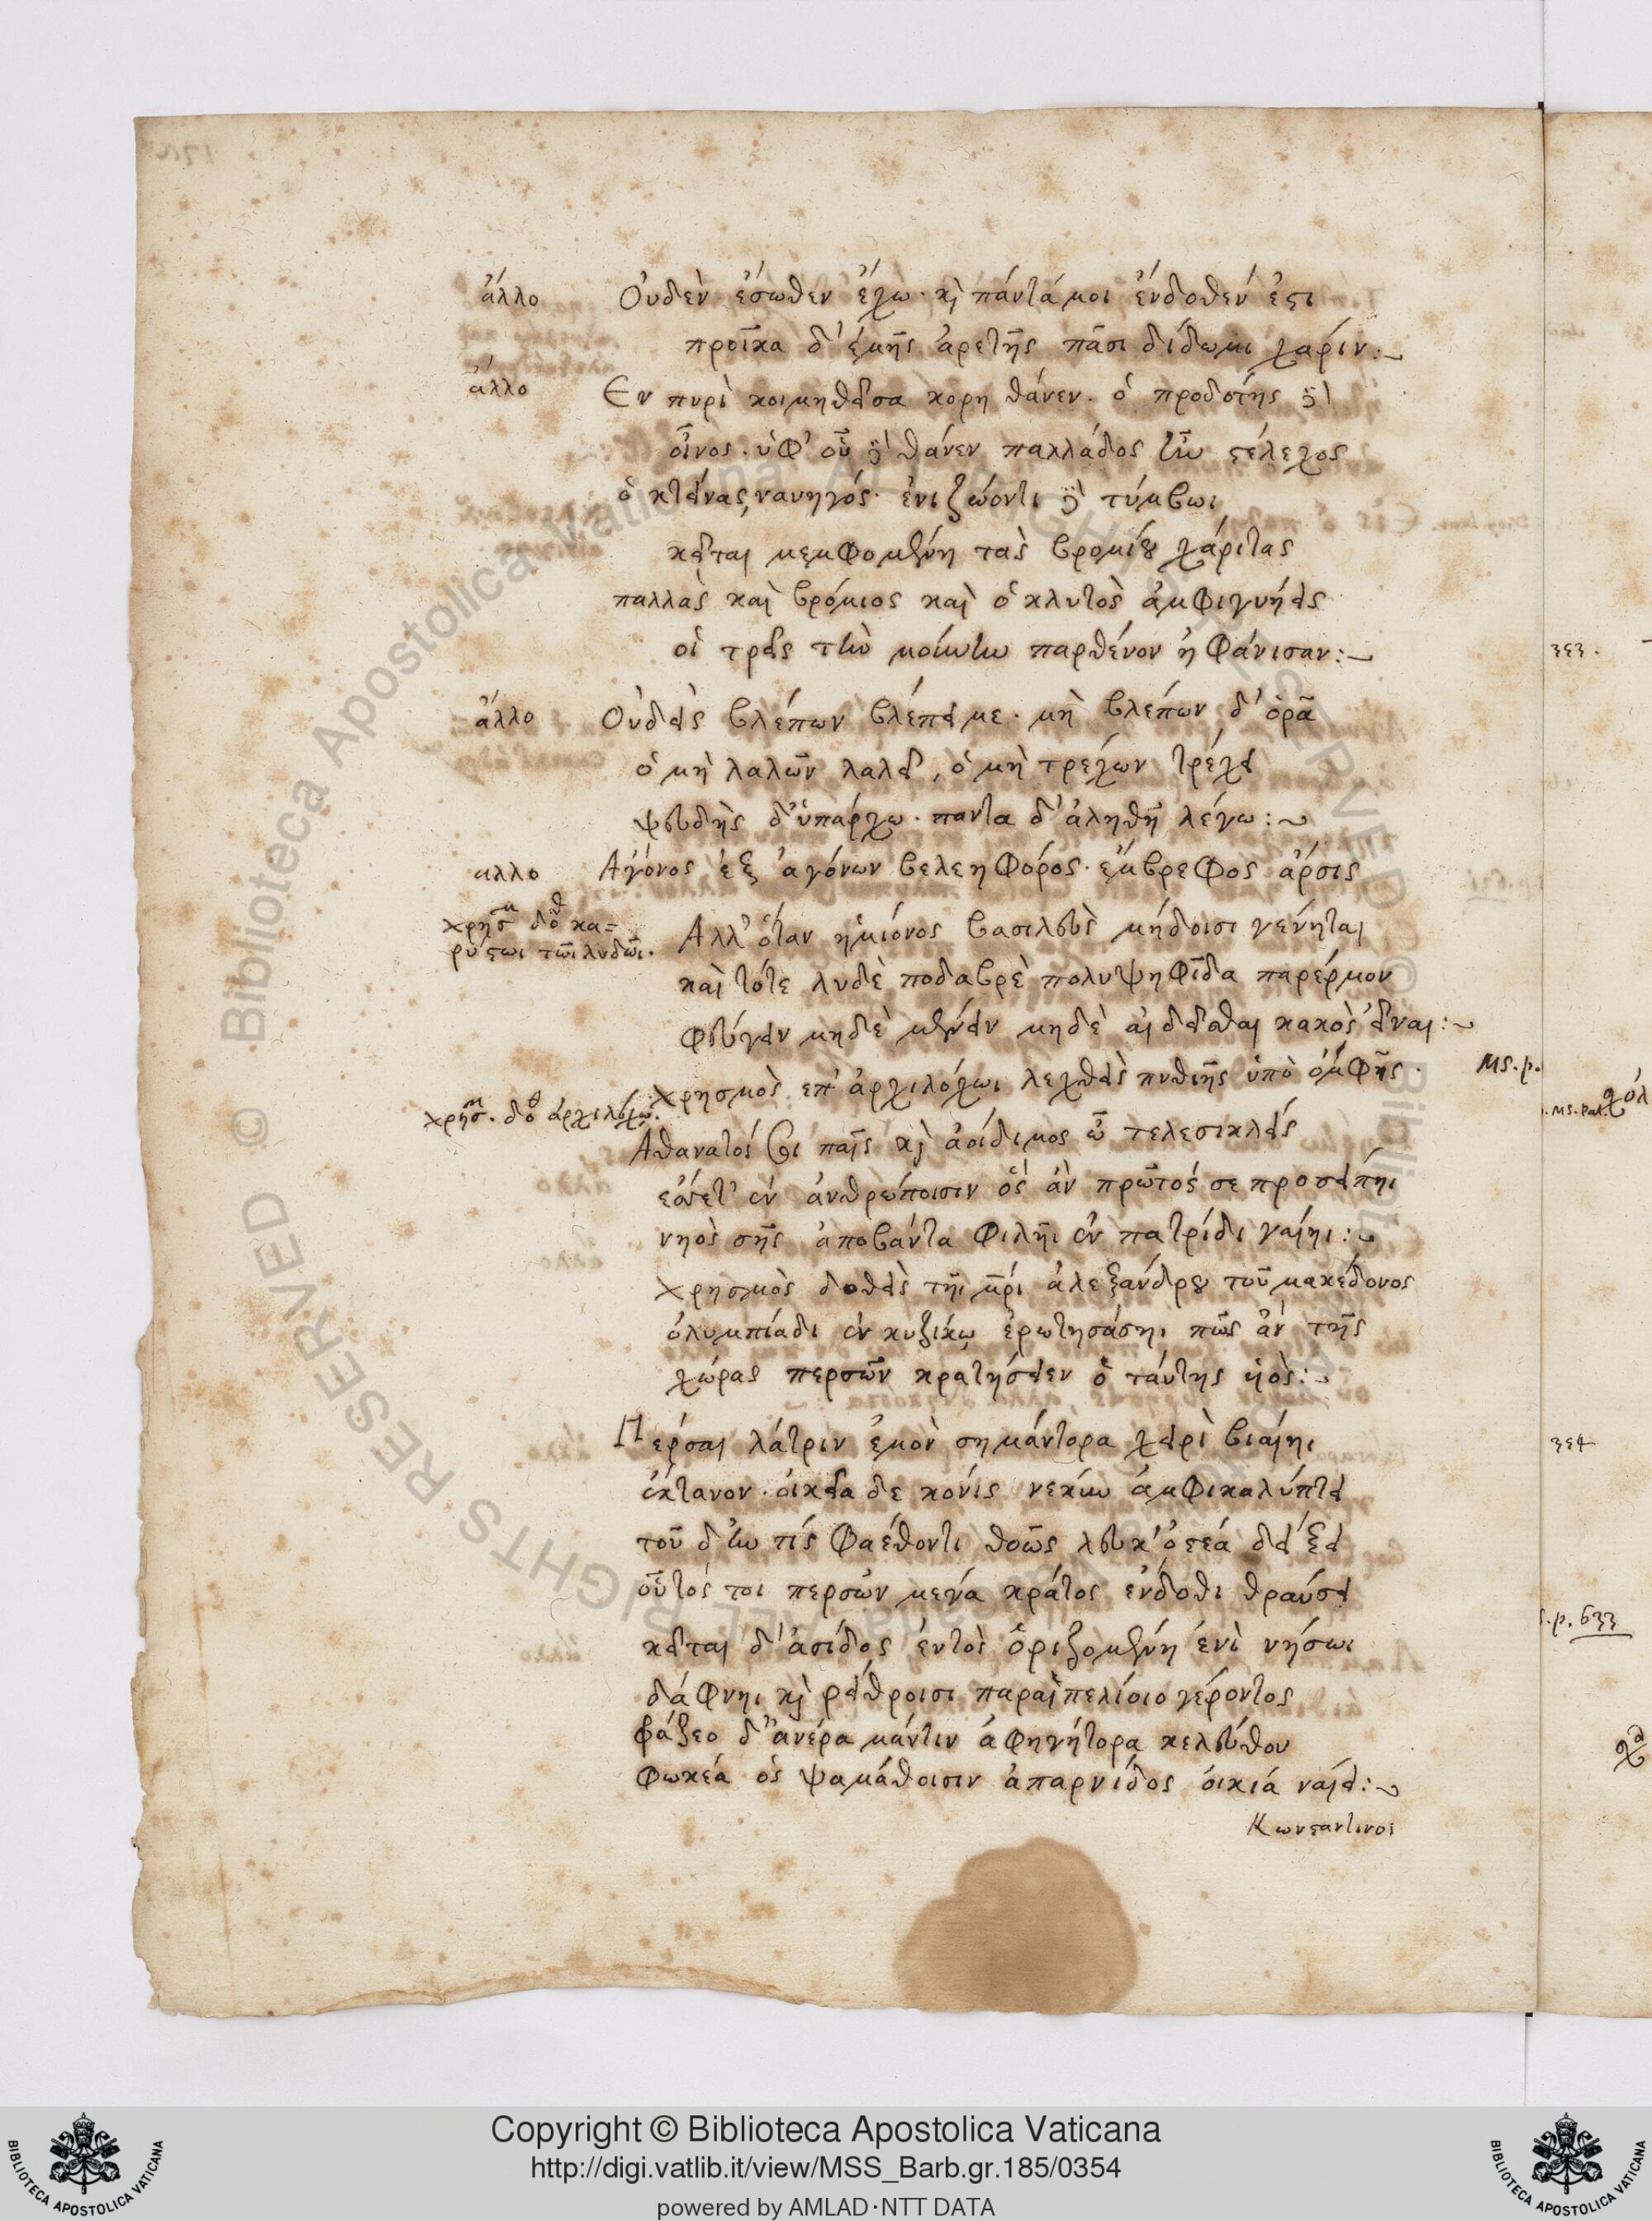 ἄλλο Οὐδὲν ἔσωθεν ἔχω· κὶ πάντά μοι ἔνδοθέν ἐστι
προῖκα δ' ἐμῆς ἀρετῆς πᾶσι δίδωμι χάριν:
ἄλλο Εν πυρὶ κοιμηθεῖσα κορη θάνεν. ὁ προδότης δὲ
οἶνος. ὑφ' οὗ δὲ θάνεν παλλάδος ἦν στέλεχος
ὁ κτείνας, ναυηγός· ἐνι ζώοντι δὲ τύμβωι
κεῖται μεμφομένη τὰς βρομίου χάριτας
παλλὰς καὶ βρόμιος καὶ ὁ κλυτὸς ἀμφιγυήεις
οἱ τρεῖς τὴν μούνην παρθένον ἠφάνισαν:
ἄλλο Οὐδεὶς βλέπων βλέπει με. μὴ βλέπων δ' ὁρᾶ
ὁ μὴ λαλῶν λαλεῖ, ὁ μὴ τρέχων τρέχει
ψευδὴς δ' ὑπάρχω. παντα δ' ἀληθῆ λέγω:
αλλο Αγόνος ἐξ ἀγόνων βελεηφόρος. ἔμβρεφος ἄρσις
χρησμ δοθ κα=
ρύσωι τῶι λυδῶι.
Αλλ' ὅταν ἡμιόνος βασιλεὺς μήδοισι γένηται
καὶ τότε λυδὲ ποδαβρὲ πολυψηφῖδα παρέρμον
φεύγειν μηδὲ μένειν μηδὲ αἰδεῖσθαι κακὸς εἶναι:
χρησμ. δοθ ἀρχιλόχω.
χρησμὸς ἐπ' ἀρχιλόχωι λεχθεὶς πυθιῆς ὑπὸ ὀμφῆς.
Αθανατός σοι παῖς κὶ ἀοίδιμος ὦ τελεσικλεῖς
ἔσσετ' ἐν ἀνθρώποισιν ὅς ἂν πρῶτός σε προσείπηι
νηὸς σῆς ἀποβάντα φιλῆι ἐν πατρίδι γαίηι:
χρησμὸς δοθεὶς τῆι μρί ἀλεξάνδρου τοῦ μακεδόνος
ὀλυμπίαδι ἐν κυζίκω ἐρωτησάσηι πῶς ἂν τῆς
χώρας περσῶν κρατήσειεν ὁ ταύτης υἱὸς:
Πέρσαι λάτριν ἐμὸν σημάντορα χειρὶ βιαίηι
ἔκτανον. οἰκεῖα δε κόνις νεκὺν ἀμφικαλύπτει
τοῦ δ' ἤν τίς φαέθοντι θοῶς λευκ' ὀστέα δείξει
οὗτός τοι περσῶν μεγα κράτος ἔνδοθι θραύσει
κεῖται δ' ἀσίδος ἐντὸς ὁριζομένη ἐνὶ νήσωι
δάφνηι κὶ ῥείθροισι παραὶ πελίοιο γέροντος
φράζεο δ' ἀνέρα μάντιν ἀφηγήτορα κελεύθου
φωκέα ὁς ψαμάθοισιν ἀπαρνίδος οἰκιά ναίει:
Κωνσταντινοι
333.
MS. p.
334
p. 633
Copyright © Biblioteca Apostolica Vaticana
http://digi.vatlib.it/view/MSS_Barb.gr.185/0354
powered by AMLAD·NTT DATA
BIBLIOTECA APOSTOLICA VATICANA
BIBLIOTECA APOSTOLICA VATICANA